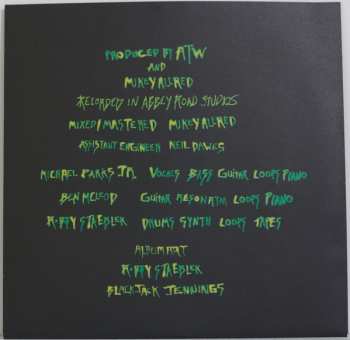 PRODUCED BY ATW
AND
MIKEY ALLRED
RECORDED IN ABBEY ROAD STUDIOS
MIXED/MASTERED MIKEY ALLRED
ASSISTANT ENGINEER NEIL DAWES
MICHAEL PARKS JR. VOCALS BASS GUITAR LOOPS PIANO
BEN MCLEOD GUITAR RESONATOR LOOPS PIANO
R-BBY STAEBLER DRUMS SYNTH LOOPS TAPES
ALBUM ART
R-BBY STAEBLER
BLACKJACK JENNINGS